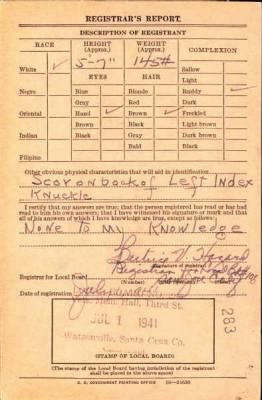 REGISTRAR'S REPORT.
DESCRIPTION OF REGISTRANT
RACE HEIGHT (Approx.) WEIGHT (Approx.) COMPLEXION
White ✓ 5'-7" 145# Sallow
EYES HAIR Light
Negro Blue Blonde Ruddy ✓
Gray Red Dark
Oriental Hazel ✓ Brown ✓ Freckled
Brown Black Light brown
Indian Black Gray Dark brown
Bald Black
Filipino
Other obvious physical characteristics that will aid in identification
Scar on back of Left Index
Knuckle
I certify that my answers are true; that the person registered has read or has had read to him his own answers; that I have witnessed his signature or mark and that all of his answers of which I have knowledge are true, except as follows:
None to my Knowledge
(Signature of registrar)
Registrar for Local Board
(Number)
Date of registration
Hall, Third St.
JUL 1 1941
Watsonville, Santa Cruz Co.
283
(STAMP OF LOCAL BOARD)
(The stamp of the Local Board having jurisdiction of the registrant shall be placed in the above space)
U. S. GOVERNMENT PRINTING OFFICE